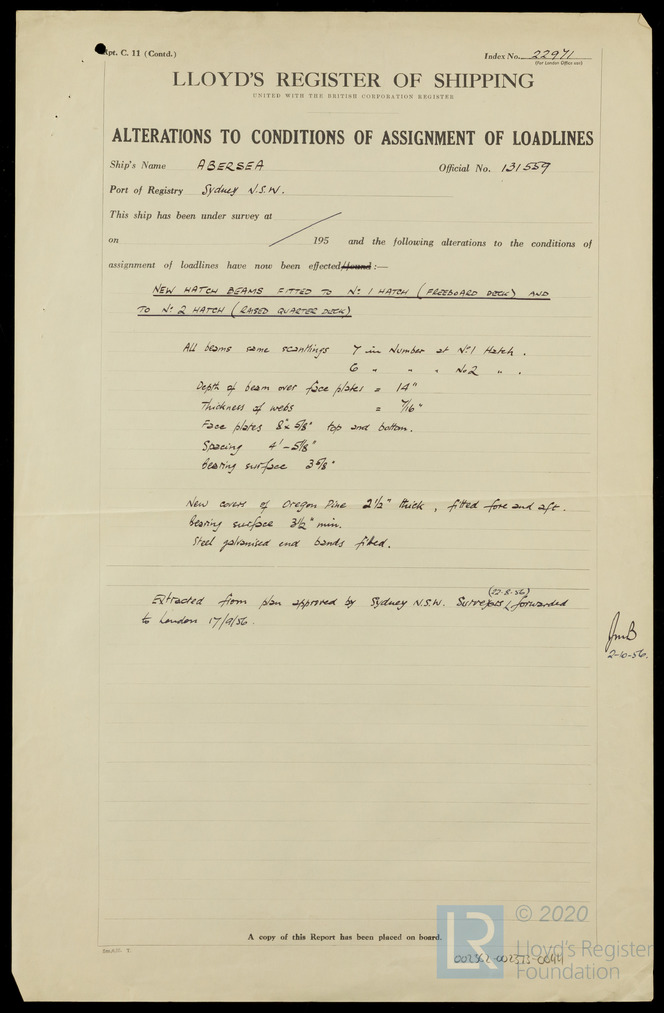 Rpt. C. 11 (Contd.)
Index No. 22971
(For London Office use)
LLOYD'S REGISTER OF SHIPPING
UNITED WITH THE BRITISH CORPORATION REGISTER
ALTERATIONS TO CONDITIONS OF ASSIGNMENT OF LOADLINES
Ship's Name ABERSEA
Official No. 131559
Port of Registry Sydney N.S.W.
This ship has been under survey at
on 195 and the following alterations to the conditions of
assignment of loadlines have now been effected/found:—
NEW HATCH BEAMS FITTED TO No. 1 HATCH (FREEBOARD DECK) AND
TO No. 2 HATCH (RAISED QUARTER DECK)
All beams same scantlings 7 in Number at No. 1 Hatch.
6 " " " No. 2 " .
Depth of beam over face plates = 14"
Thickness of webs = 7/16"
Face plates 8" x 5/8" top and bottom.
Spacing 4' - 5 1/8"
Bearing surface 3 5/8"
New covers of Oregon Pine 2 1/2" thick, fitted fore and aft.
Bearing surface 3 1/2" min.
Steel galvanised end bands fitted.
(22-8-56)
Extracted from plan approved by Sydney N.S.W. Surveyors & forwarded
to London 17/9/56.
JMB
2-10-56.
A copy of this Report has been placed on board.
LR
© 2020
Lloyd's Register
Foundation
002362-002373-0044